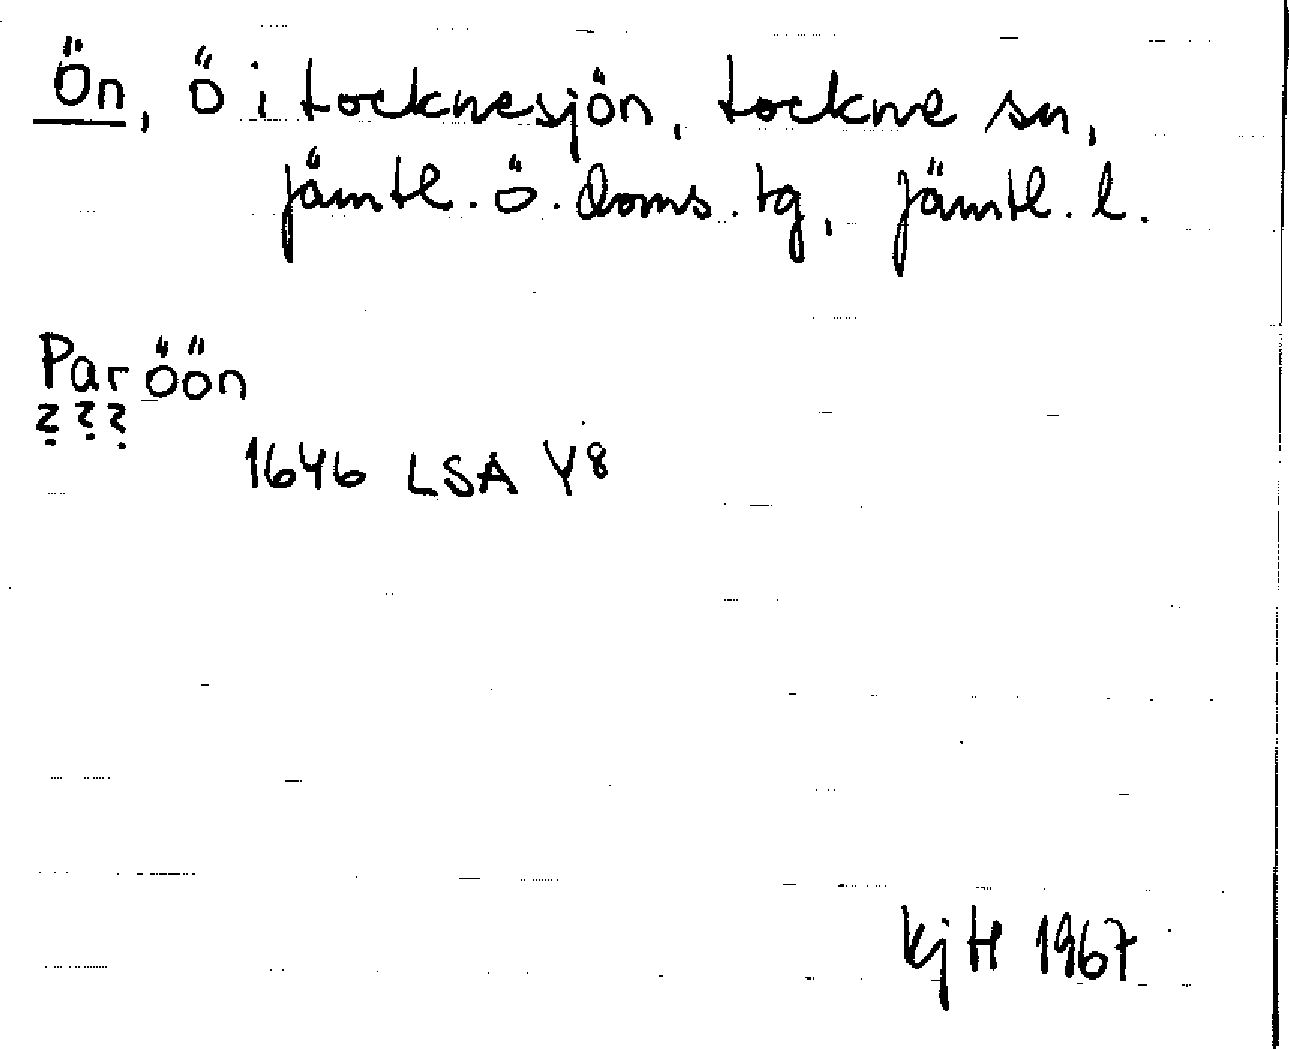 Ön, ö i tocknesjön, tockne sn,
jämtl. ö. doms. tg, jämtl. l.
Par öön
? ? ?
1646 LSA Y8
kj H 1967